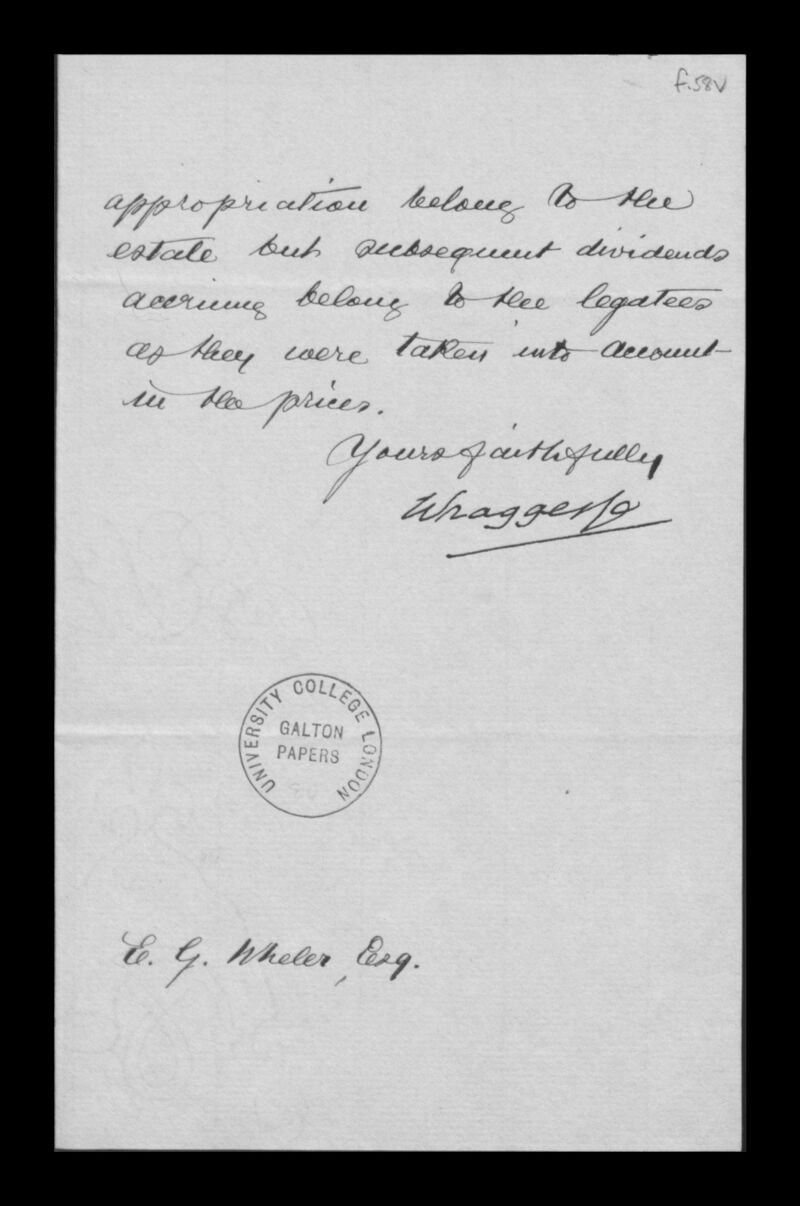 f.58v
appropriation belong to the
estate but subsequent dividends
accruing belong to the legatees
as they were taken into account
in the prices.
Yours faithfully
UNIVERSITY COLLEGE LONDON
GALTON
PAPERS
E. G. Wheler, Esq.